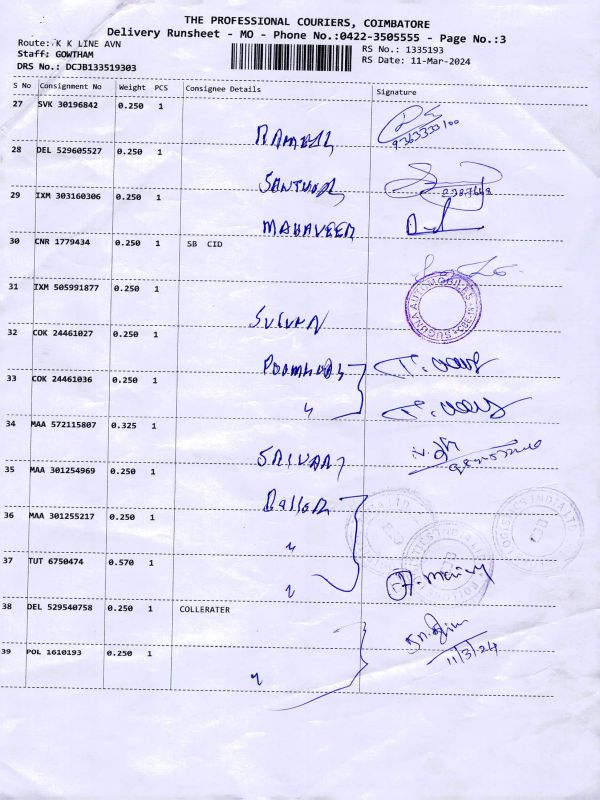 THE PROFESSIONAL COURIERS, COIMBATORE
Delivery Runsheet - MO - Phone No.:0422-3505555 - Page No.:3
Route: K K LINE AVN
RS No.: 1335193
Staff: GOWTHAM
RS Date: 11-Mar-2024
DRS No.: DCJB133519303
S No Consignment No Weight PCS Consignee Details Signature
27 SVK 30196842 0.250 1 RAMESH
28 DEL 529605527 0.250 1 SANTHOSH
29 IXM 303160306 0.250 1 MAHAVEER
30 CNR 1779434 0.250 1 SB CID
31 IXM 505991877 0.250 1 SUGUNA
SUGUNA AUTOMOBILES
32 COK 24461027 0.250 1
33 COK 24461036 0.250 1 〃
34 MAA 572115807 0.325 1
35 MAA 301254969 0.250 1
36 MAA 301255217 0.250 1 〃
37 TUT 6750474 0.570 1 〃
38 DEL 529540758 0.250 1 COLLERATER
39 POL 1610193 0.250 1 〃
11/3/24